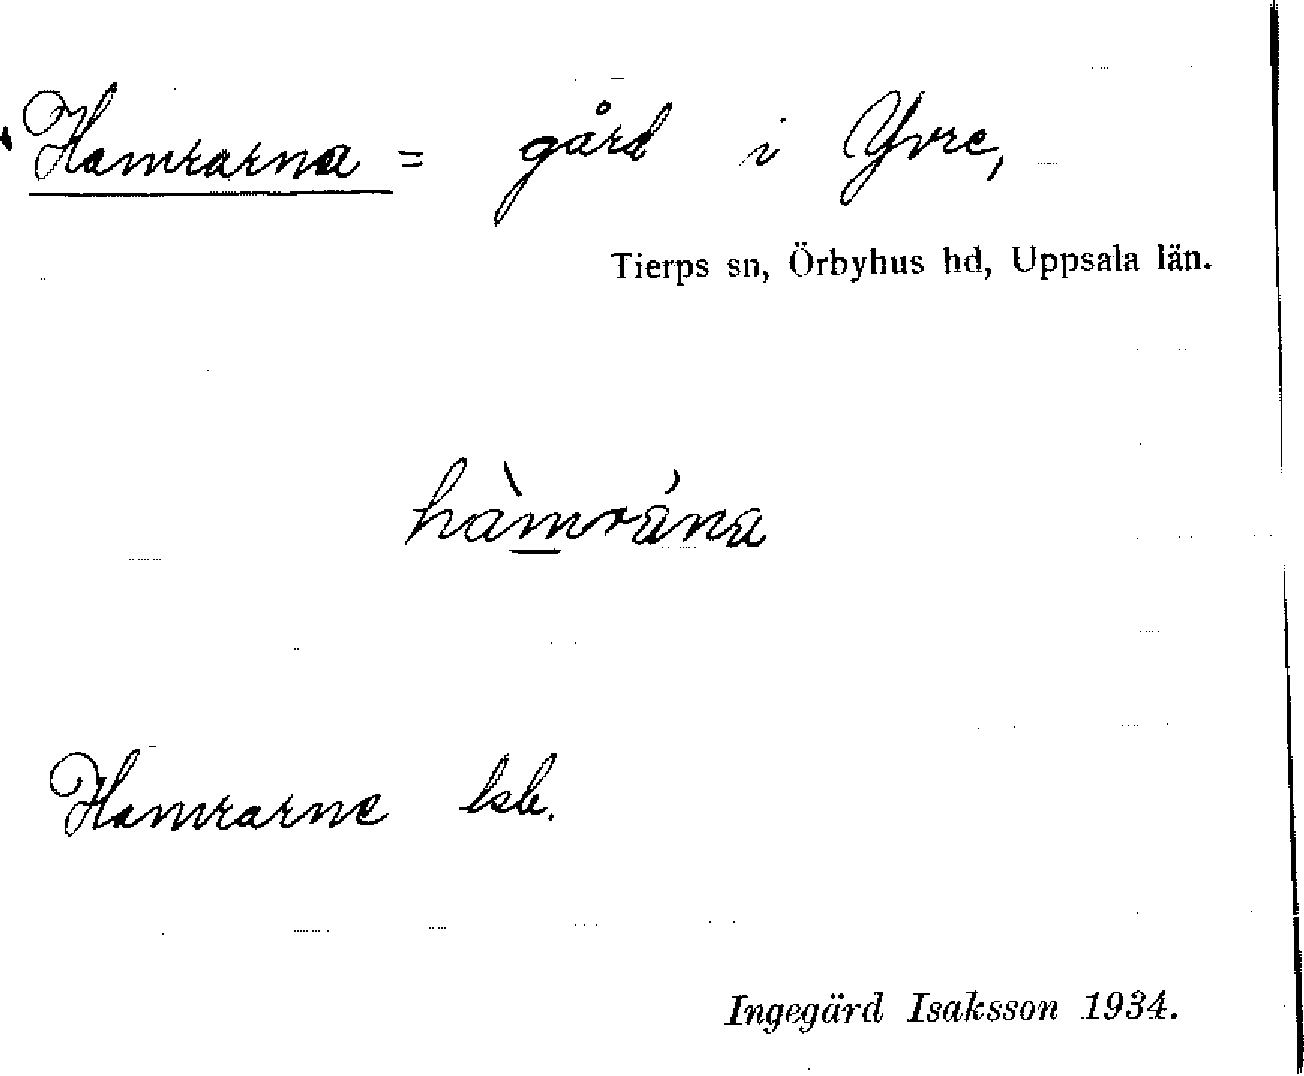 Hamrarna = gård i Yvre,
Tierps sn, Örbyhus hd, Uppsala län.
hàmrána
Hamrarne lsb.
Ingegärd Isaksson 1934.